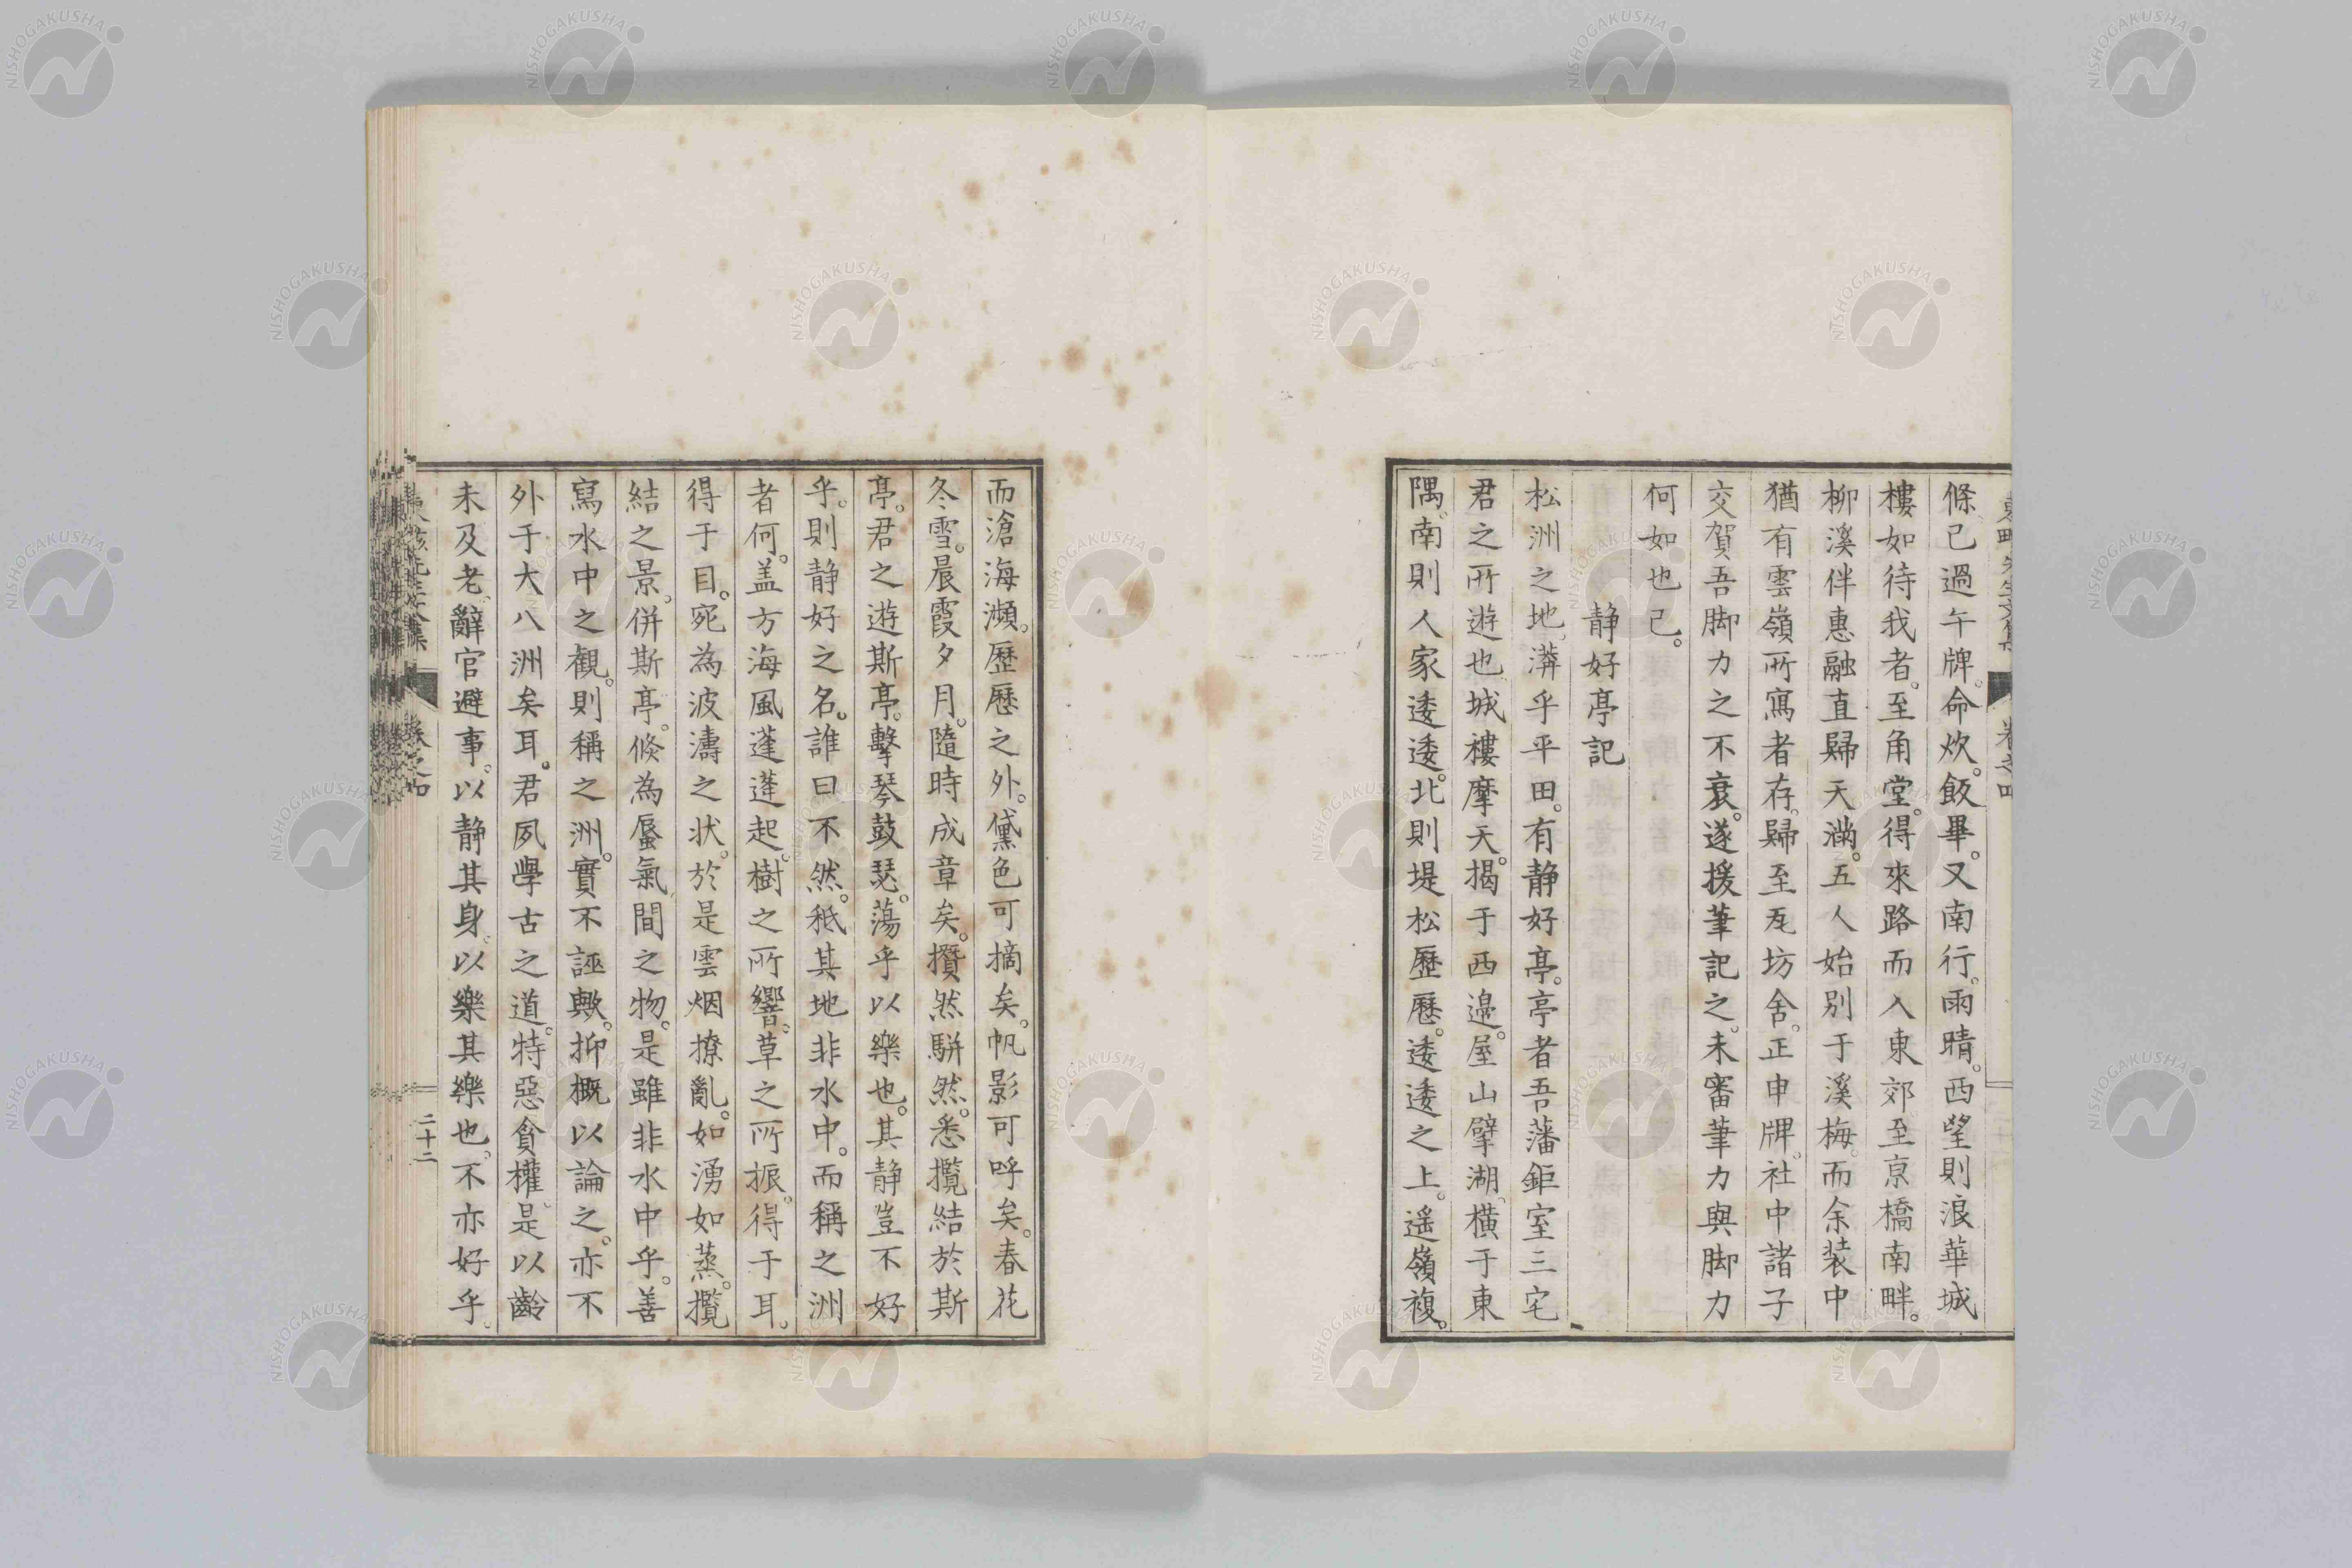 條已過午牌。命炊。飯畢。又南行。雨晴。西望則浪華城
樓如待我者。至角堂。得來路而入東郊。至京橋南畔。
柳溪伴惠融直歸天滿。五人始別于溪梅。而余装中
猶有雲嶺所寫者存。歸至瓦坊舍。正申牌。社中諸子
交賀吾脚力之不衰。遂援筆記之。未審筆力與脚力
何如也已。
静好亭記
松洲之地。漭乎平田。有静好亭。亭者吾藩鉅室三宅
君之所遊也。城樓摩天。揭于西邉。屋山擘湖。橫于東
隅。南則人家逶逶。北則堤松歷歷。逶逶之上。遥嶺複。
而滄海瀕。歷歷之外。黛色可摘矣。帆影可呼矣。春花
冬雪。晨霞夕月。隨時成章矣。攢然駢然。悉攬結於斯
亭。君之遊斯亭。擊琴鼓瑟。蕩乎以樂也。其静豈不好
乎。則静好之名。誰曰不然。秪其地非水中。而稱之洲
者何。盖方海風蓬蓬起。樹之所響。草之所振。得于耳。
得于目。宛為波濤之状。於是雲烟撩亂。如湧如蒸。攬
結之景。併斯亭。倏為蜃氣間之物。是雖非水中乎。善
寫水中之觀。則稱之洲。實不誣歟。抑概以論之。亦不
外于大八洲矣耳。君夙學古之道。特惡貪權。是以齡
未及老。辭官避事。以静其身。以樂其樂也。不亦好乎。
東畡先生文集 卷之四 二十二